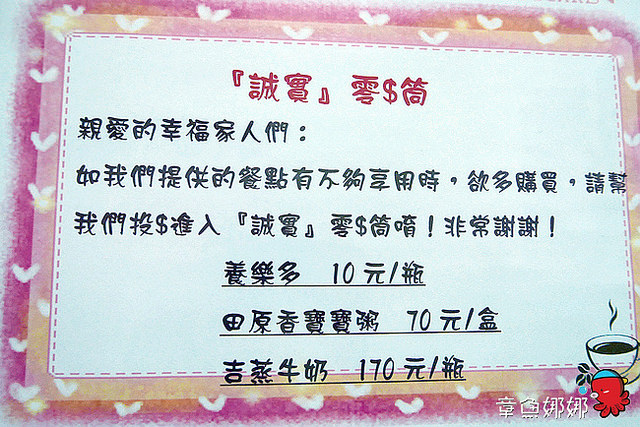 『誠實』零$筒
親愛的幸福家人們：
如我們提供的餐點有不夠享用時，欲多購買，請幫
我們投$進入『誠實』零$筒唷！非常謝謝！
養樂多 10元/瓶
田原香寶寶粥 70元/盒
吉蒸牛奶 170元/瓶
章魚娜娜